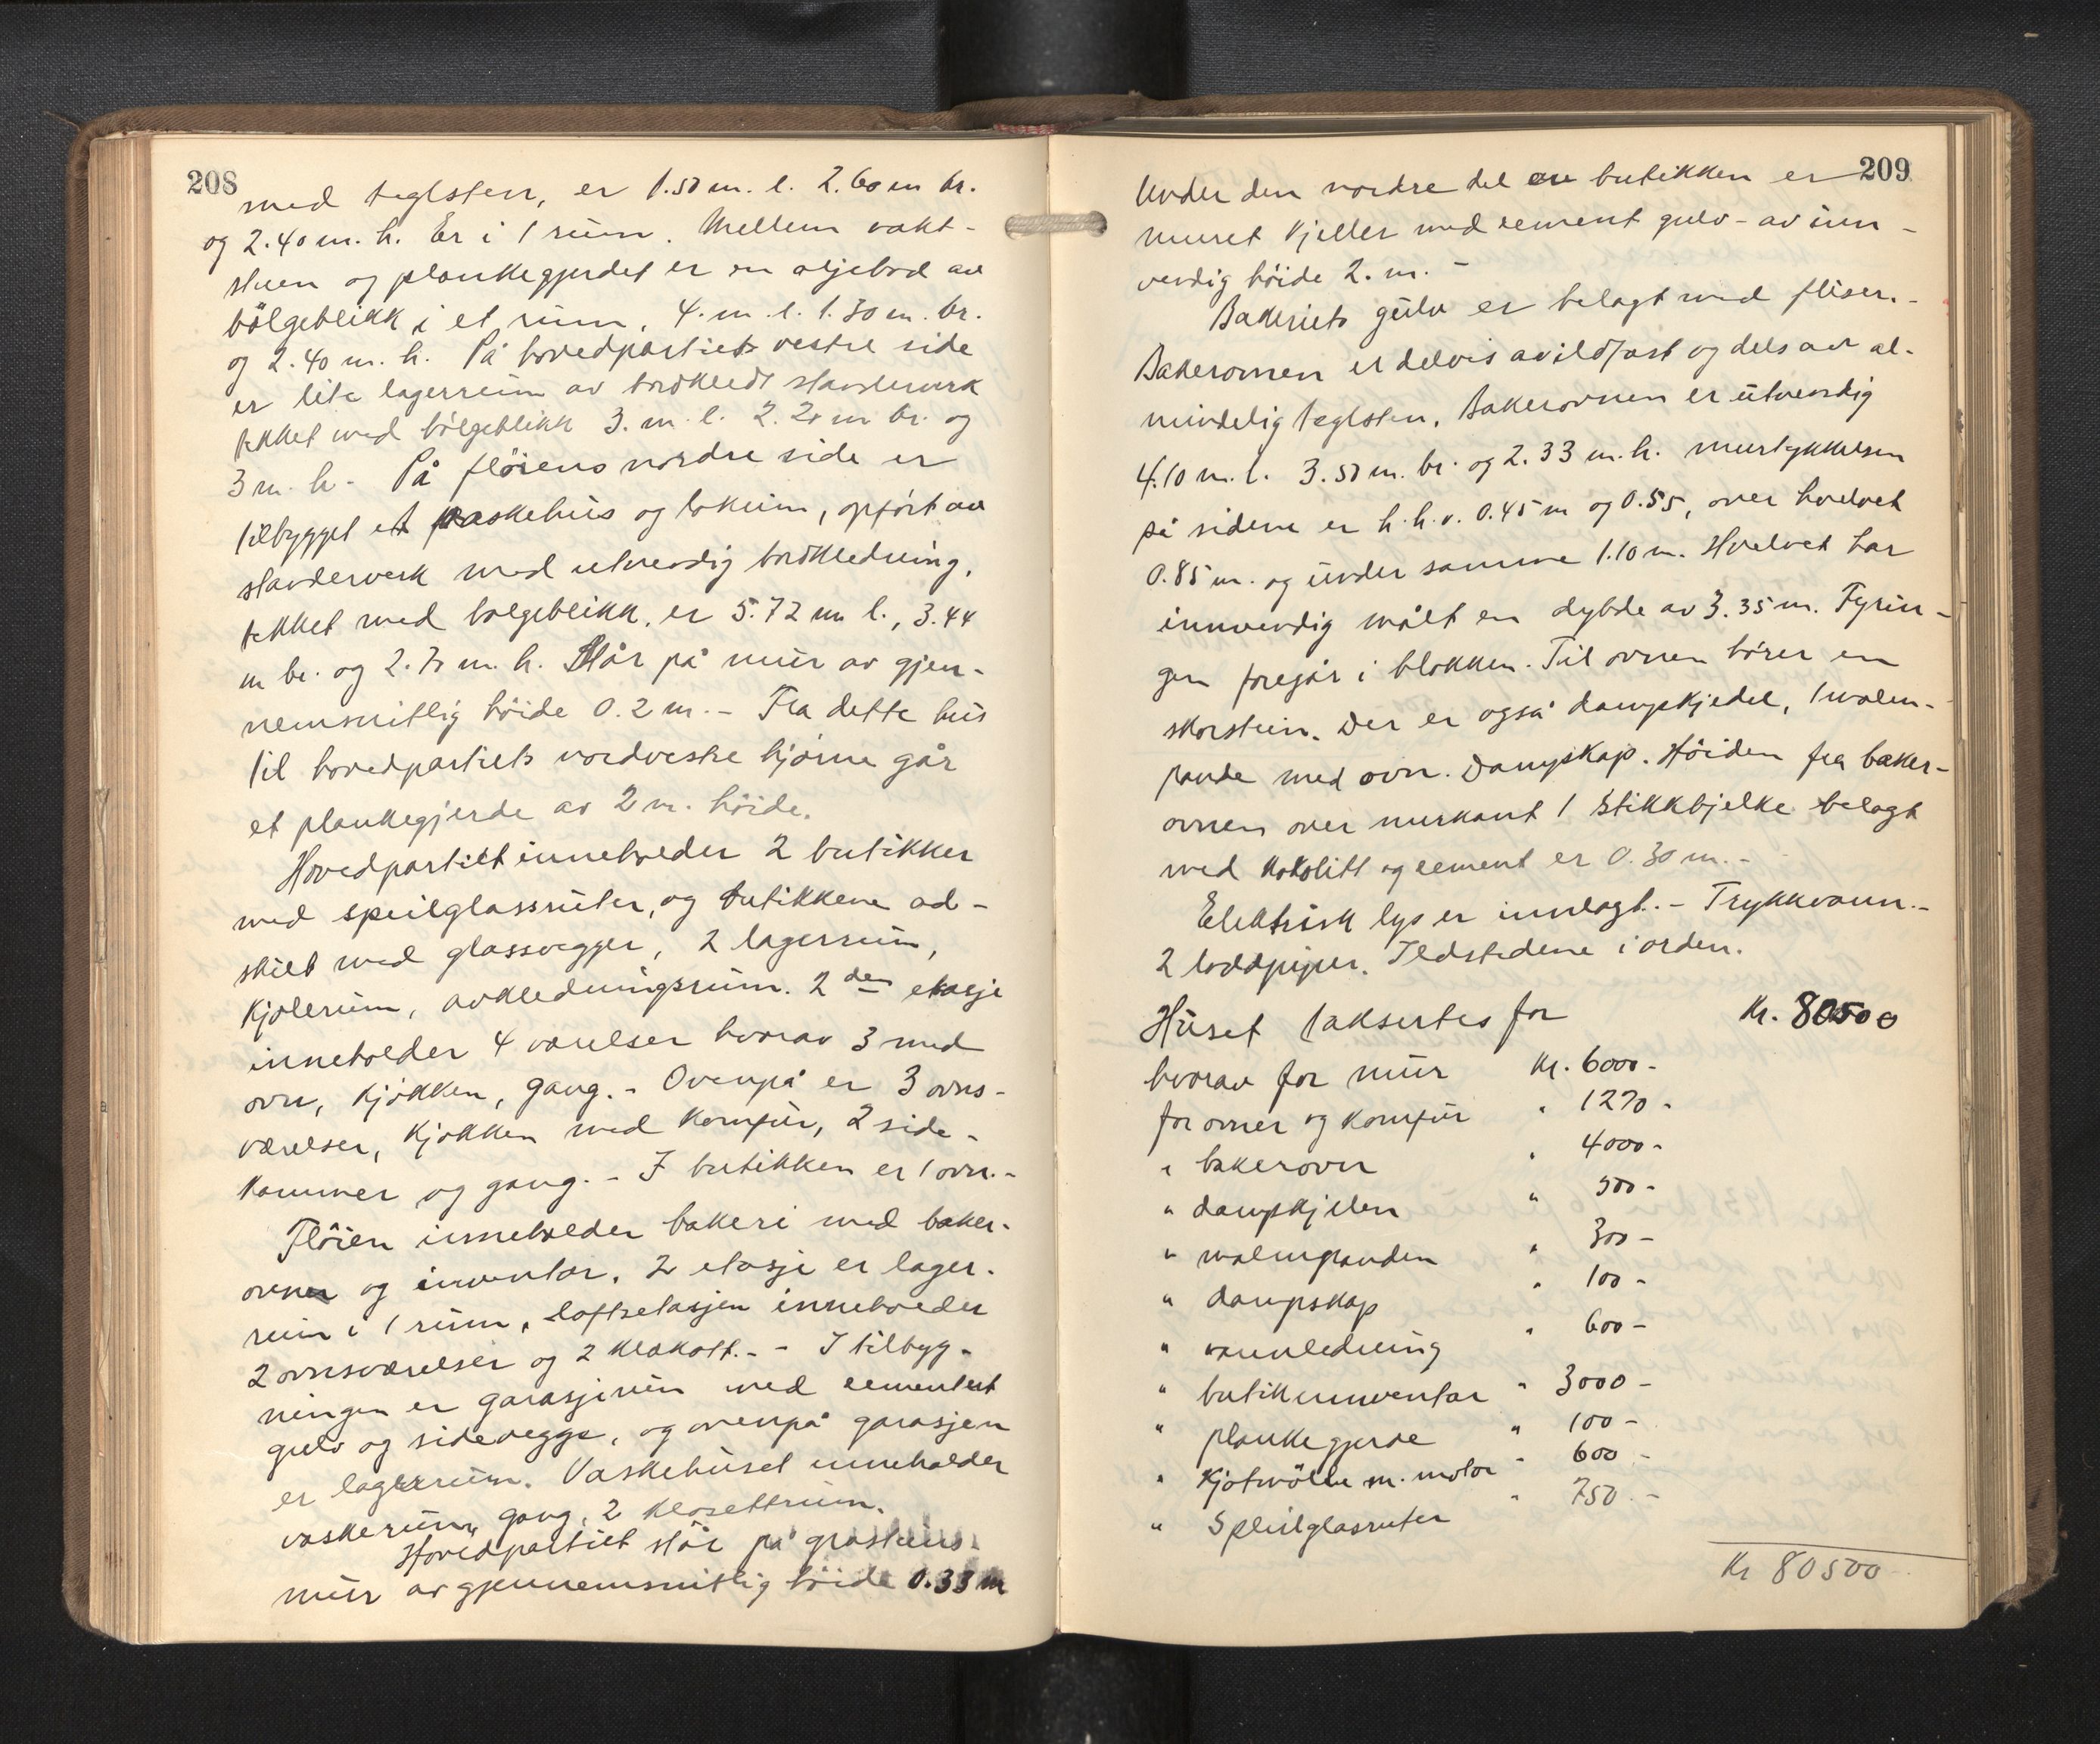 208
med teglsten, er 1.50 m. l. 2.60 m br.
og 2.40 m. h. Er i 1 rum. Mellem vakt-
stuen og plankegjerdet er en oljebod av
bölgeblikk i et rum, 4. m. l. 1.30 m. br.
og 2.40 m. h. På hovedpartiets vestre side
er lite lagerrum av bordklædt standerverk
tekket med bölgeblikk 3. m. l. 2.20 m br. og
3 m. h. - På flöiens nordre side er
tilbygget et vaskehus og lokum, opfört av
standerverk med utvendig bordkledning,
tekket med bolgeblikk, er 5.72 m l., 3.44
m br. og 2.70 m. h. Står på mur av gjen-
nemsnitlig höide 0.2 m. - Fra dette hus
til hovedpartiets nordvestre hjörne går
et plankegjerde av 2 m. höide.
Hovedpartiet inneholder 2 butikker
med speilglassruter, og butikkene ad-
skilt med glassvegger, 2 lagerrum,
Kjölerum, avkledningsrum. 2den etasje
inneholder 4 værelser hvorav 3 med
ovn, Kjökken, gang. - Ovenpå er 3 ovns-
værelser, Kjökken med Komfur, 2 side-
kammer og gang. - I butikken er 1 ovn. -
Flöien inneholder bakeri med baker-
ovner og inventar. 2 etasje er lager-
rum i 1 rum, loftsetasjen inneholder
2 ovnsværelser og 2 klækott. - - I tilbyg-
ningen er garasjerum med cementert
gulv og sidevegge, og ovenpå garasjen
er lagerrum. Vaskehuset inneholder
vaskerum, gang, 2 klosettrum.
Hovedpartiet står på gråstens-
mur av gjennemsnitlig höide 0.33 m
209
Under den nordre del av butikken er
muret Kjeller med cement gulv - av inn-
vendig höide 2. m. -
Bakeriets gulv er belagt med fliser. -
Bakerovnen er delvis av ildfast og dels av al-
mindelig teglsten. Bakerovnen er utvendig
4.10 m. l. 3.50 m. br. og 2.33 m. h. murtykkelsen
på sidene er h. h. v. 0.45 m og 0.55, over hvelvet
0.85 m. og under samme 1.10 m. Hvelvet har
innvendig målt en dybde av 3.35 m. Fyrin-
gen foregår i blokken. Til ovnen hörer en
skorstein. Der er også dampkjedel, 1 malm-
pande med ovn. Dampskap. Höiden fra baker-
ovnen over murkant / Stikkbjelke belagt
med Kokolitt og cement er 0.30 m. -
Elektrisk lys er innlagt. - Trykkvann. -
2 loddpiper. Ildstedene i orden.
Huset taksertes for Kr. 80500
hvorav for mur Kr. 6000 -
for ovner og Komfur " 1270 -
" bakerovn " 4000 -
" dampkjelen " 500 -
" malmpanden " 300 -
" dampskap " 100 -
" vannledning " 600 -
" butikinnventar " 3000 -
" plankegjerde " 100 -
" Kjötmölle m. motor " 600 -
" Speilglasruter " 750. -
Kr 80500 -